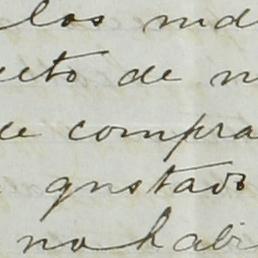 los ind
ecto de m
de compra
gustado
no habi